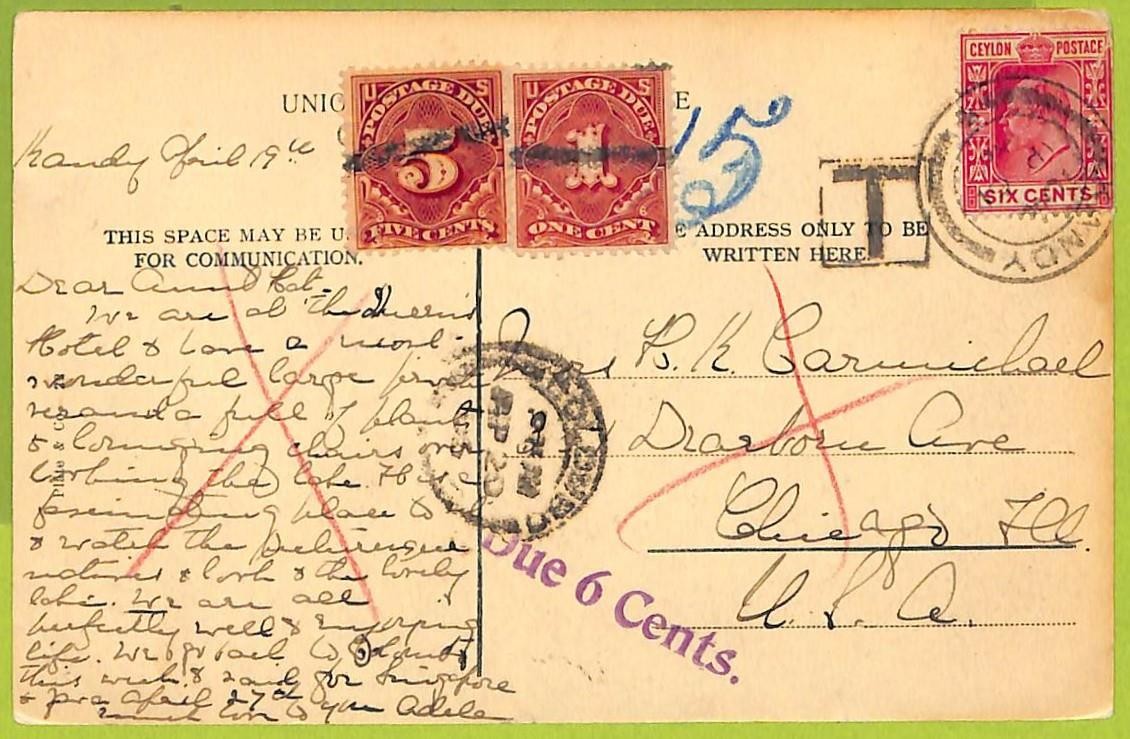 UNIO
E
CEYLON POSTAGE
SIX CENTS
U S
POSTAGE DUE
5
FIVE CENTS
U S
POSTAGE DUE
1
ONE CENT
15
T
KANDY
Kandy April 19th
THIS SPACE MAY BE U
FOR COMMUNICATION.
E ADDRESS ONLY TO BE
WRITTEN HERE.
Dear Aunt Kat-
We are at the Queens
Hotel & have a most
wonderful large
veranda full of plants
& lounging chairs over
looking the lake. It is a
fascinating place to
& watch the picturesque
natives & look & the lovely
lake. We are all
perfectly well & enjoying
life. We go back to
this week & sail for Singapore
& Java April 27th
much love to you Adele
Mrs B. K. Carmichael
Dearborn Ave
Chicago Ill.
U. S. A.
AP 20
Due 6 Cents.